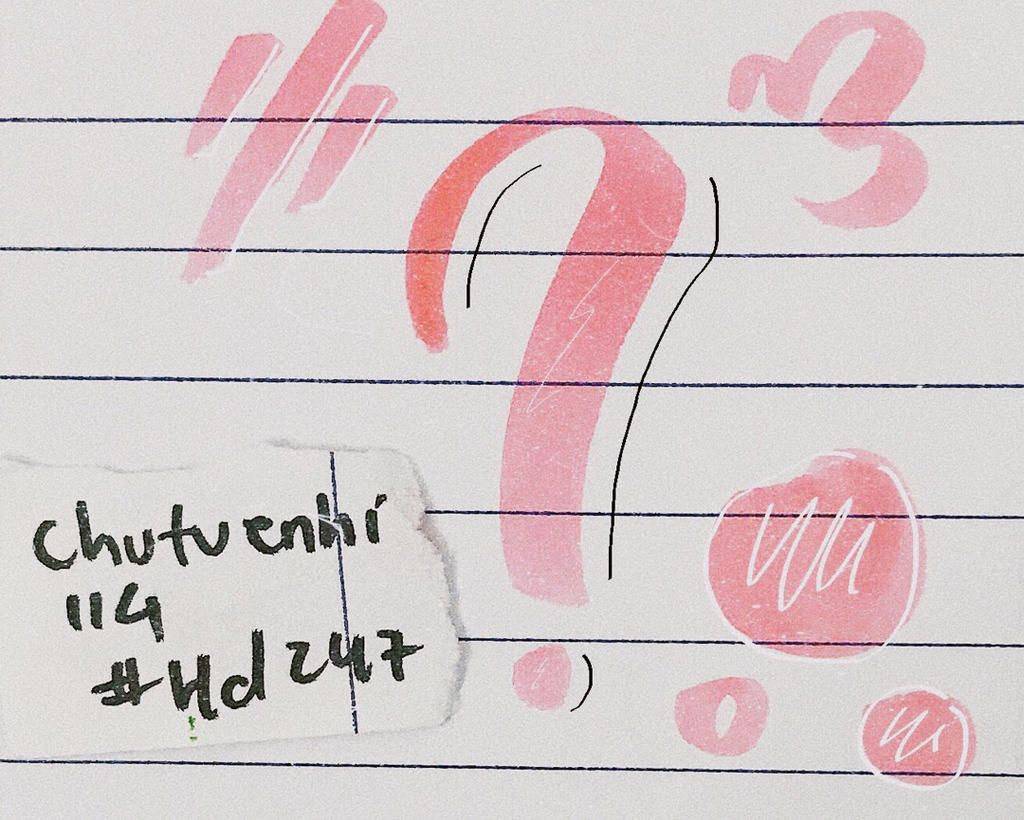 ?
Chutuenhi
11G
#Hd247